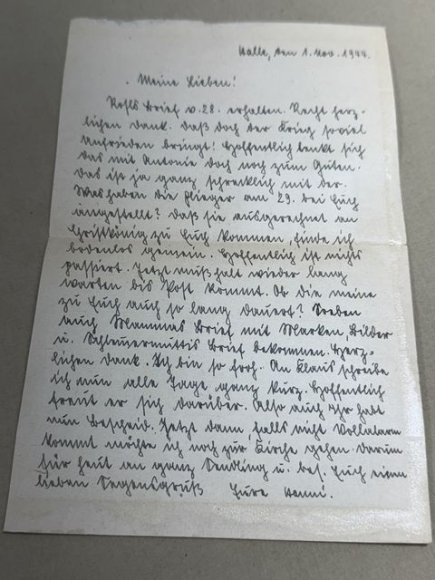 Halle, den 1. Nov. 1944.
Meine Lieben!
Rosls Brief v. 28. erhalten. Recht herz-
lichen Dank. Daß doch der Krieg soviel
Unfrieden bringt! Hoffentlich lenkt sich
das mit Antonie doch noch zum Guten.
Das ist ja ganz schrecklich mit der.
Was haben die Flieger am 29. bei Euch
angestellt? Daß sie ausgerechnet an
Christkönig zu Euch kommen, finde ich
bodenlos gemein. Hoffentlich ist nichts
passiert. Jetzt muß halt wieder lang
warten bis Post kommt. Ob die meine
zu Euch auch so lang dauert? Soeben
auch Mammas Brief mit Marken, Bilder
u. Brief bekommen. Herz-
lichen Dank. Ich bin so froh. An Klaus schreibe
ich nun alle Tage ganz kurz. Hoffentlich
freut er sich darüber. Also auch Ihr habt
nun Bescheid. Jetzt dann, falls nicht Vollalarm
kommt möchte ich noch zur Kirche gehen. Darum
für heut an ganz Sendling u. bes. Euch einen
lieben Segensgruß Eure Henni.